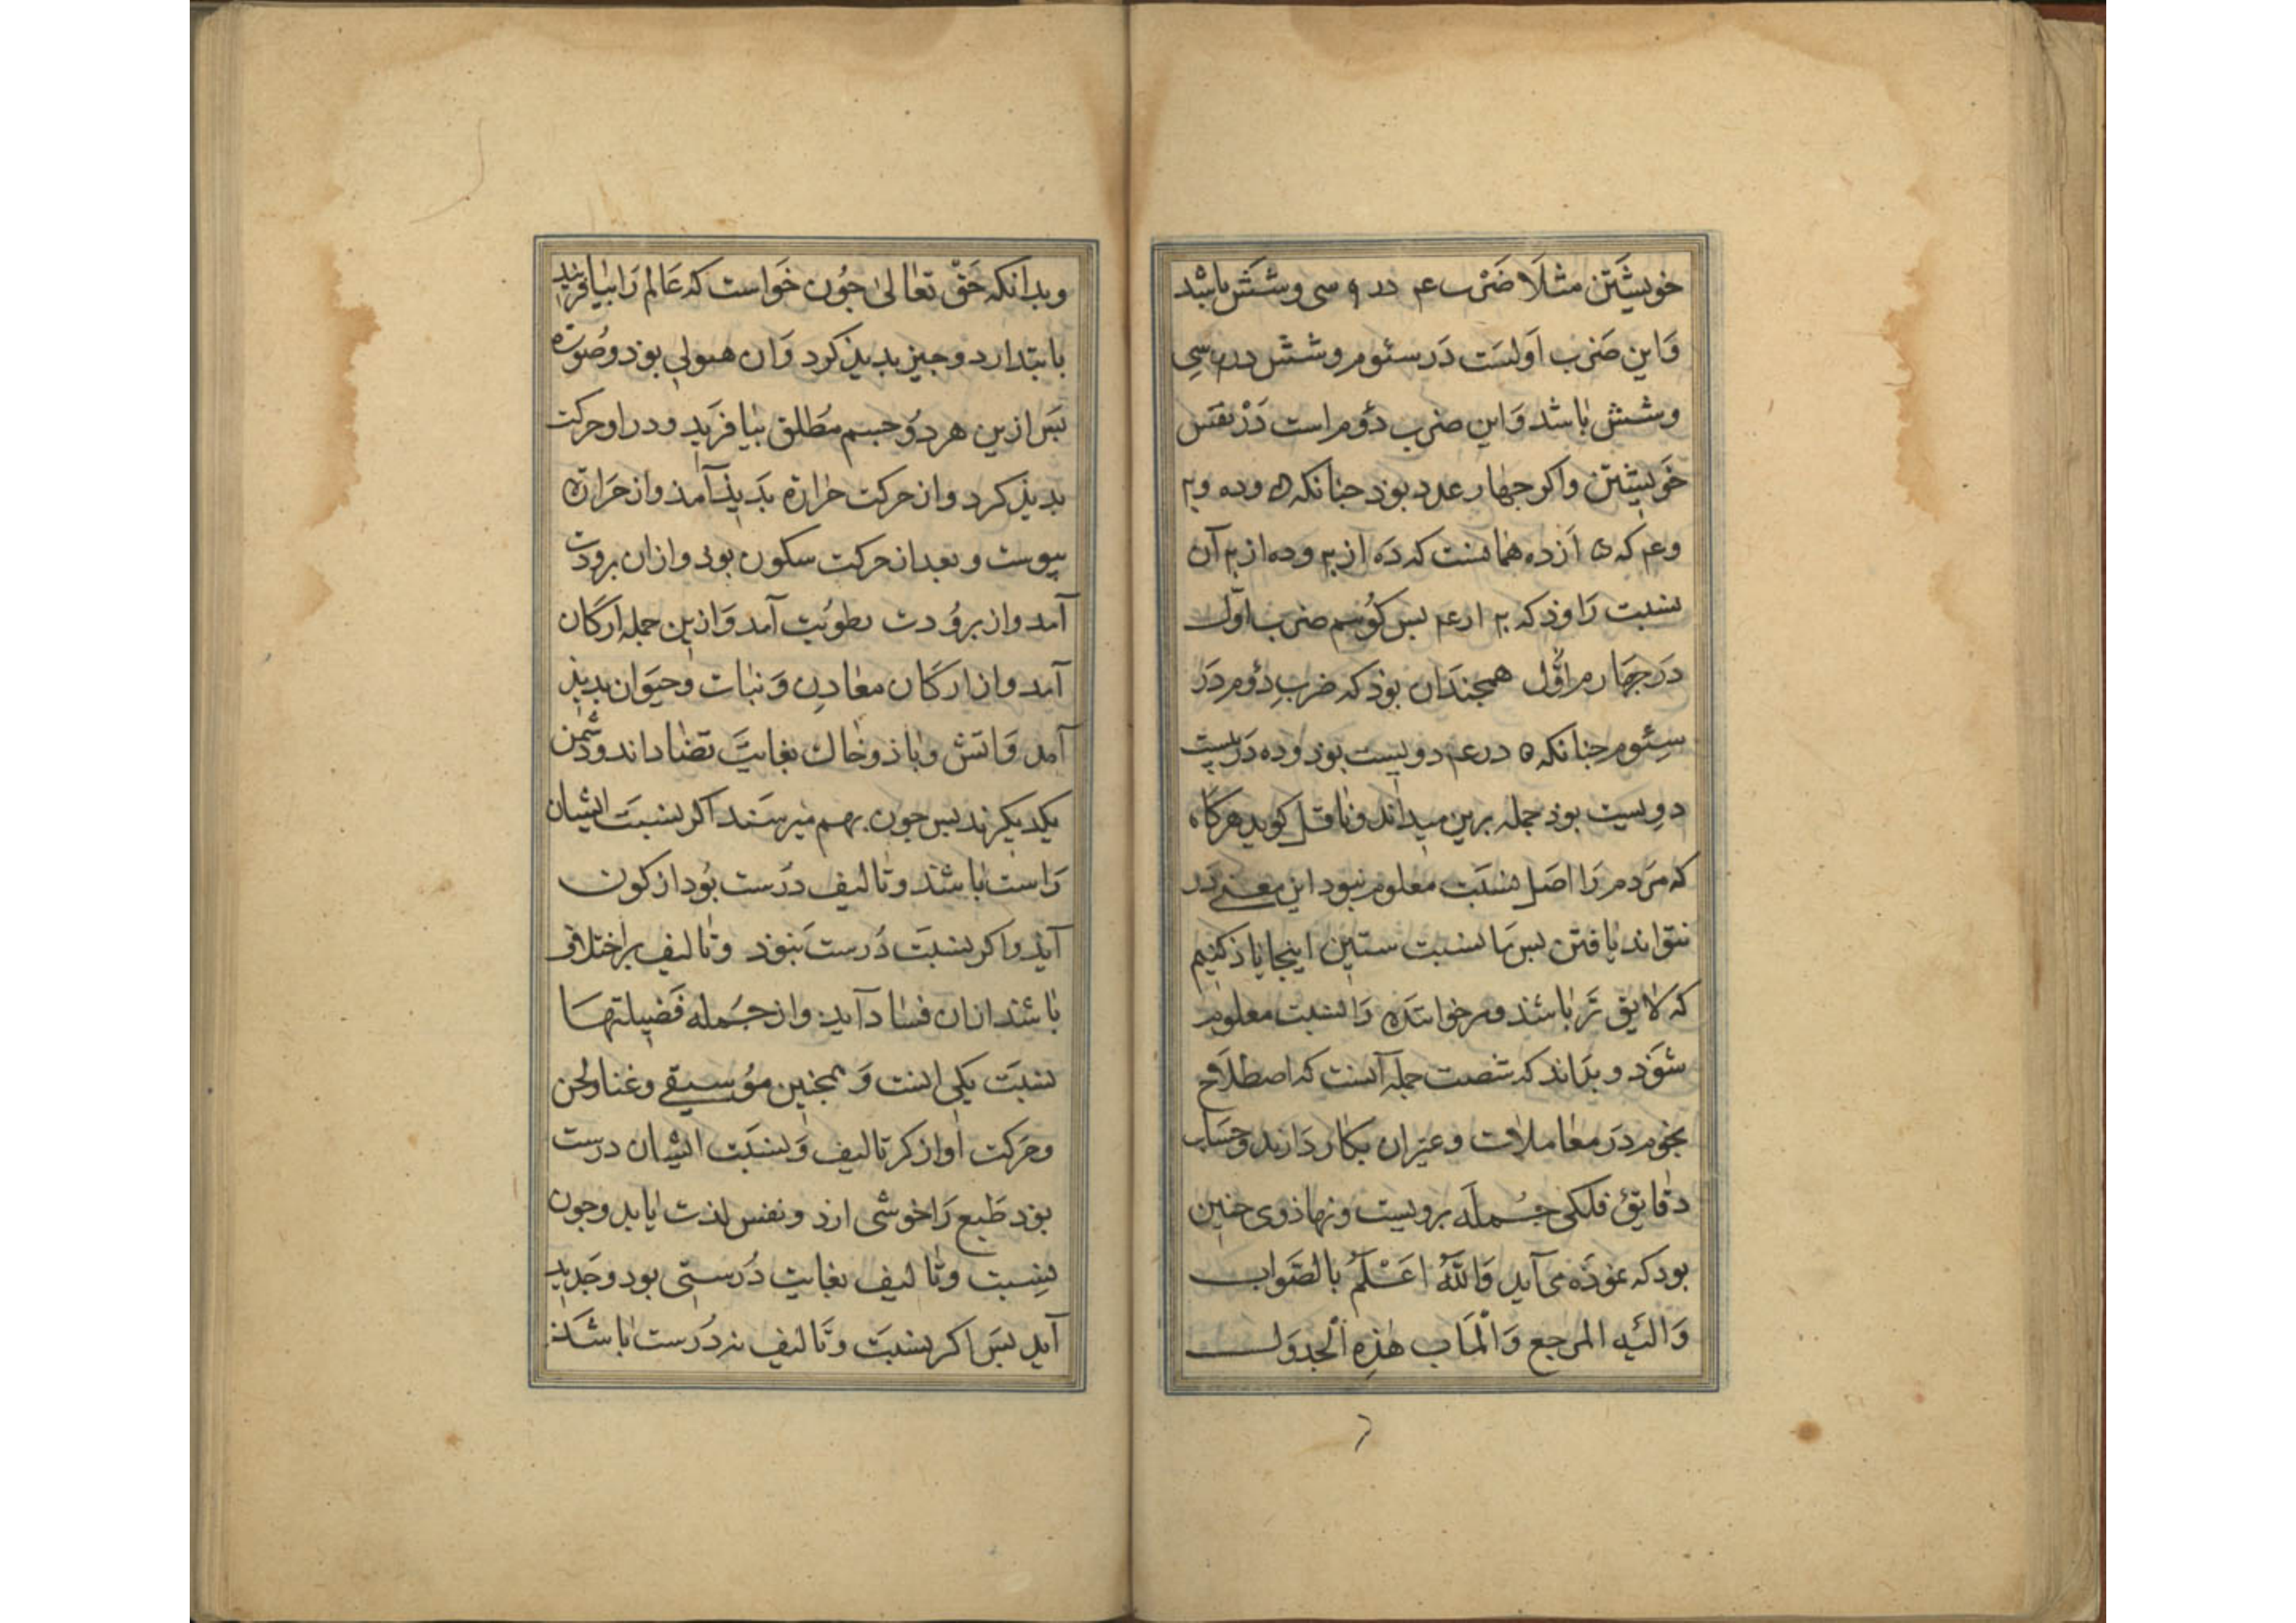 خویشَتن مثلَا ضَرْب ۴ در ۹ سی وشَشْ باشد
وَاین ضَرب اَولسَت دَر سئوم وشش در سِی
وشش باشد وَاین ضرب دوُم است دَرْ نفَس
خَویشتن واکر جهار عدد بوذ جنانکه ۵ وده و۲۰
و۴۰ که ۵ اَزده همانست که دَه از ۲۰ وده از ۲۰ آن
نسبت رَاوذ که ۲۰ از ۴۰ بس کوُیم ضرب اوّل
دَر جهَارم اوَّل همجندَان بوذ که ضربِ دوُم دَر
سِئوم جنانکه ۵ در ۴۰ دویست بوذ وده دَر بیست
دوِیست بوذ جمله برین میداند وناقل کوید هرکَاه
که مَردم رَا اصَل نسبَت معلوم نبود این معنی دَر
نتواند یافتن بس مَا نسبت ستین اینجا یاذ کنیم
که لایق تَر باشذ ومر خوانندَه رَا نسبت معلوم
شوَذ وبدَاند که شصت جمله آنست که اصطلاَح
نجوم دَر معَاملات وغیران بکار دَارند وحسَاب
دقایق فلکی جُمله برویست ونهاذ وی جنین
بود که نموذَه می آید وَاللّهُ اَعْلَمُ بالصَّواب
وَالَیهِ المرجع وَالْمَاب هٰذِهِ الْجدوَل
وبدَانکه حَقّ تعَالی جُون خَواست که عَالم رَا بیافریند
بابتدا رد وجیز بدیذ کرد وَان هیولی بوَذ وصُورَة
بَس ازین هر دوُ جسم مُطلق بیافرَید ودر او حرکت
بدیذ کرد واز حرکت حَرارَة بدَیذ آمذ واز حَرارَة
یبوست وبعد از حرکت سکون بوذ وازان برودت
آمد واز بروُدت رطوُبت آمد وَازین جمله ارکَان
آمد واز ارکَان معَادِن وَنبات وحیَوان بدیذ
آمد وَاتش وباذ وخاك بغایتَ تضَاد اند ودشمن
یکدیکرند بس جون بهم میرسَند اکر نسبَت ایشان
رَاست باشذ وتالیف درَست بُود از کون
آیذ واکر نسبَت دُرست نبوَذ وتالیف بر اختلاف
باشذ ازان فسَاد آید واز جُمله فَضیلتهَا
نسبَت یکی اینست وَهمجنین موُسیقی وغنا ولحن
وحَرکت اواز کر تالیف وَنسبَت ایشان درست
بوَذ طَبع رَا خوشی ارد ونفس لذت یابد وجون
نِسبت وتالیف بغایت دُرستی بود وجَد بدید
آید بسَ اکر نسبَت وتَالیف نه دُرست باشَذ